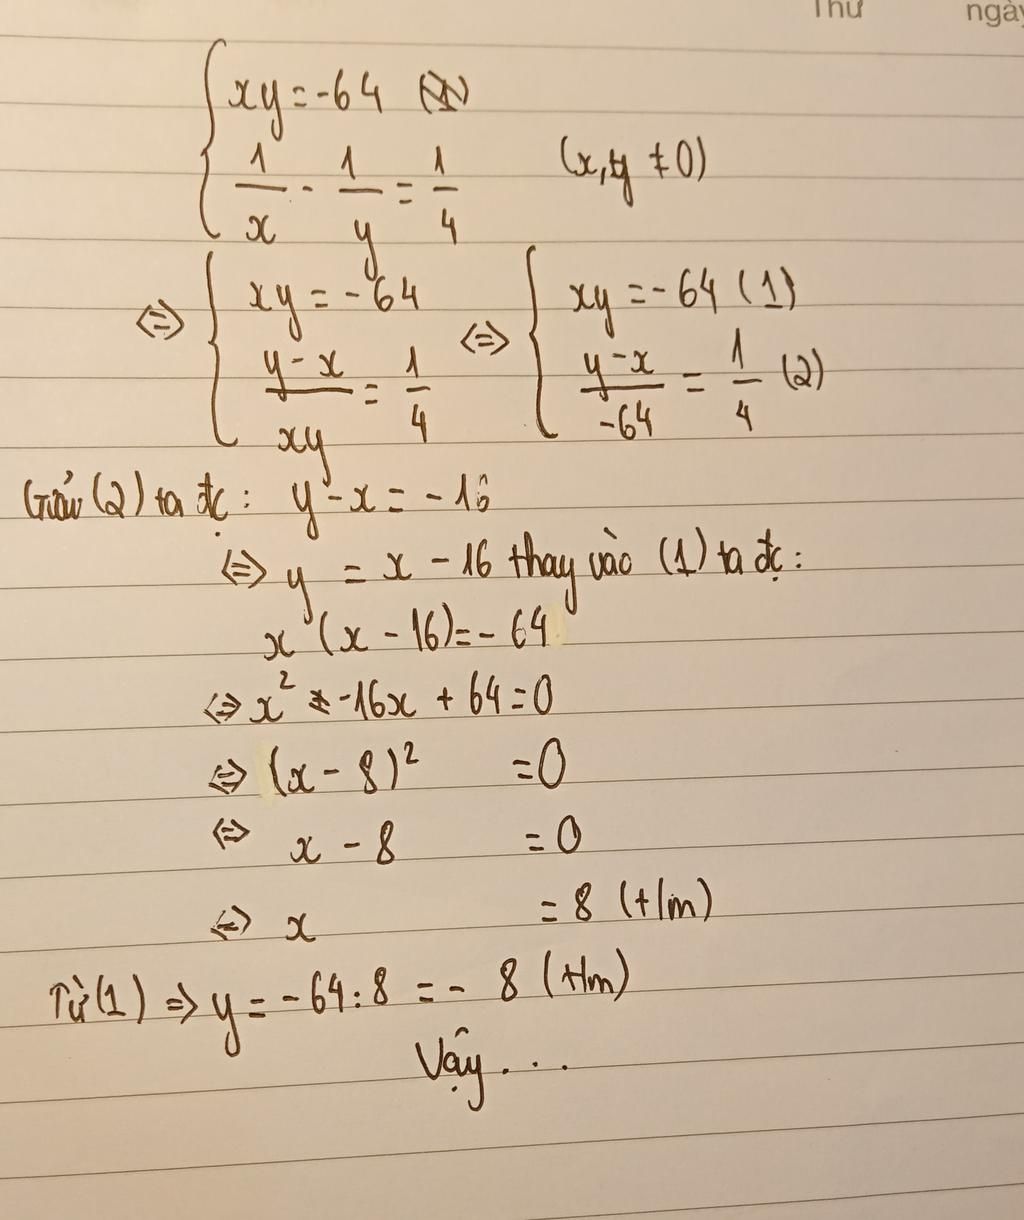 Thứ ngày
xy = -64
1/x - 1/y = 1/4 (x, y ≠ 0)
⇔ { xy = -64 ⇔ { xy = -64 (1)
(y - x)/xy = 1/4 (y - x)/-64 = 1/4 (2)
Giải (2) ta đc: y - x = -16
⇔ y = x - 16 thay vào (1) ta đc:
x (x - 16) = -64
⇔ x² - 16x + 64 = 0
⇔ (x - 8)² = 0
⇔ x - 8 = 0
⇔ x = 8 (t/m)
Từ (1) ⇒ y = -64 : 8 = - 8 (t/m)
Vậy . . .